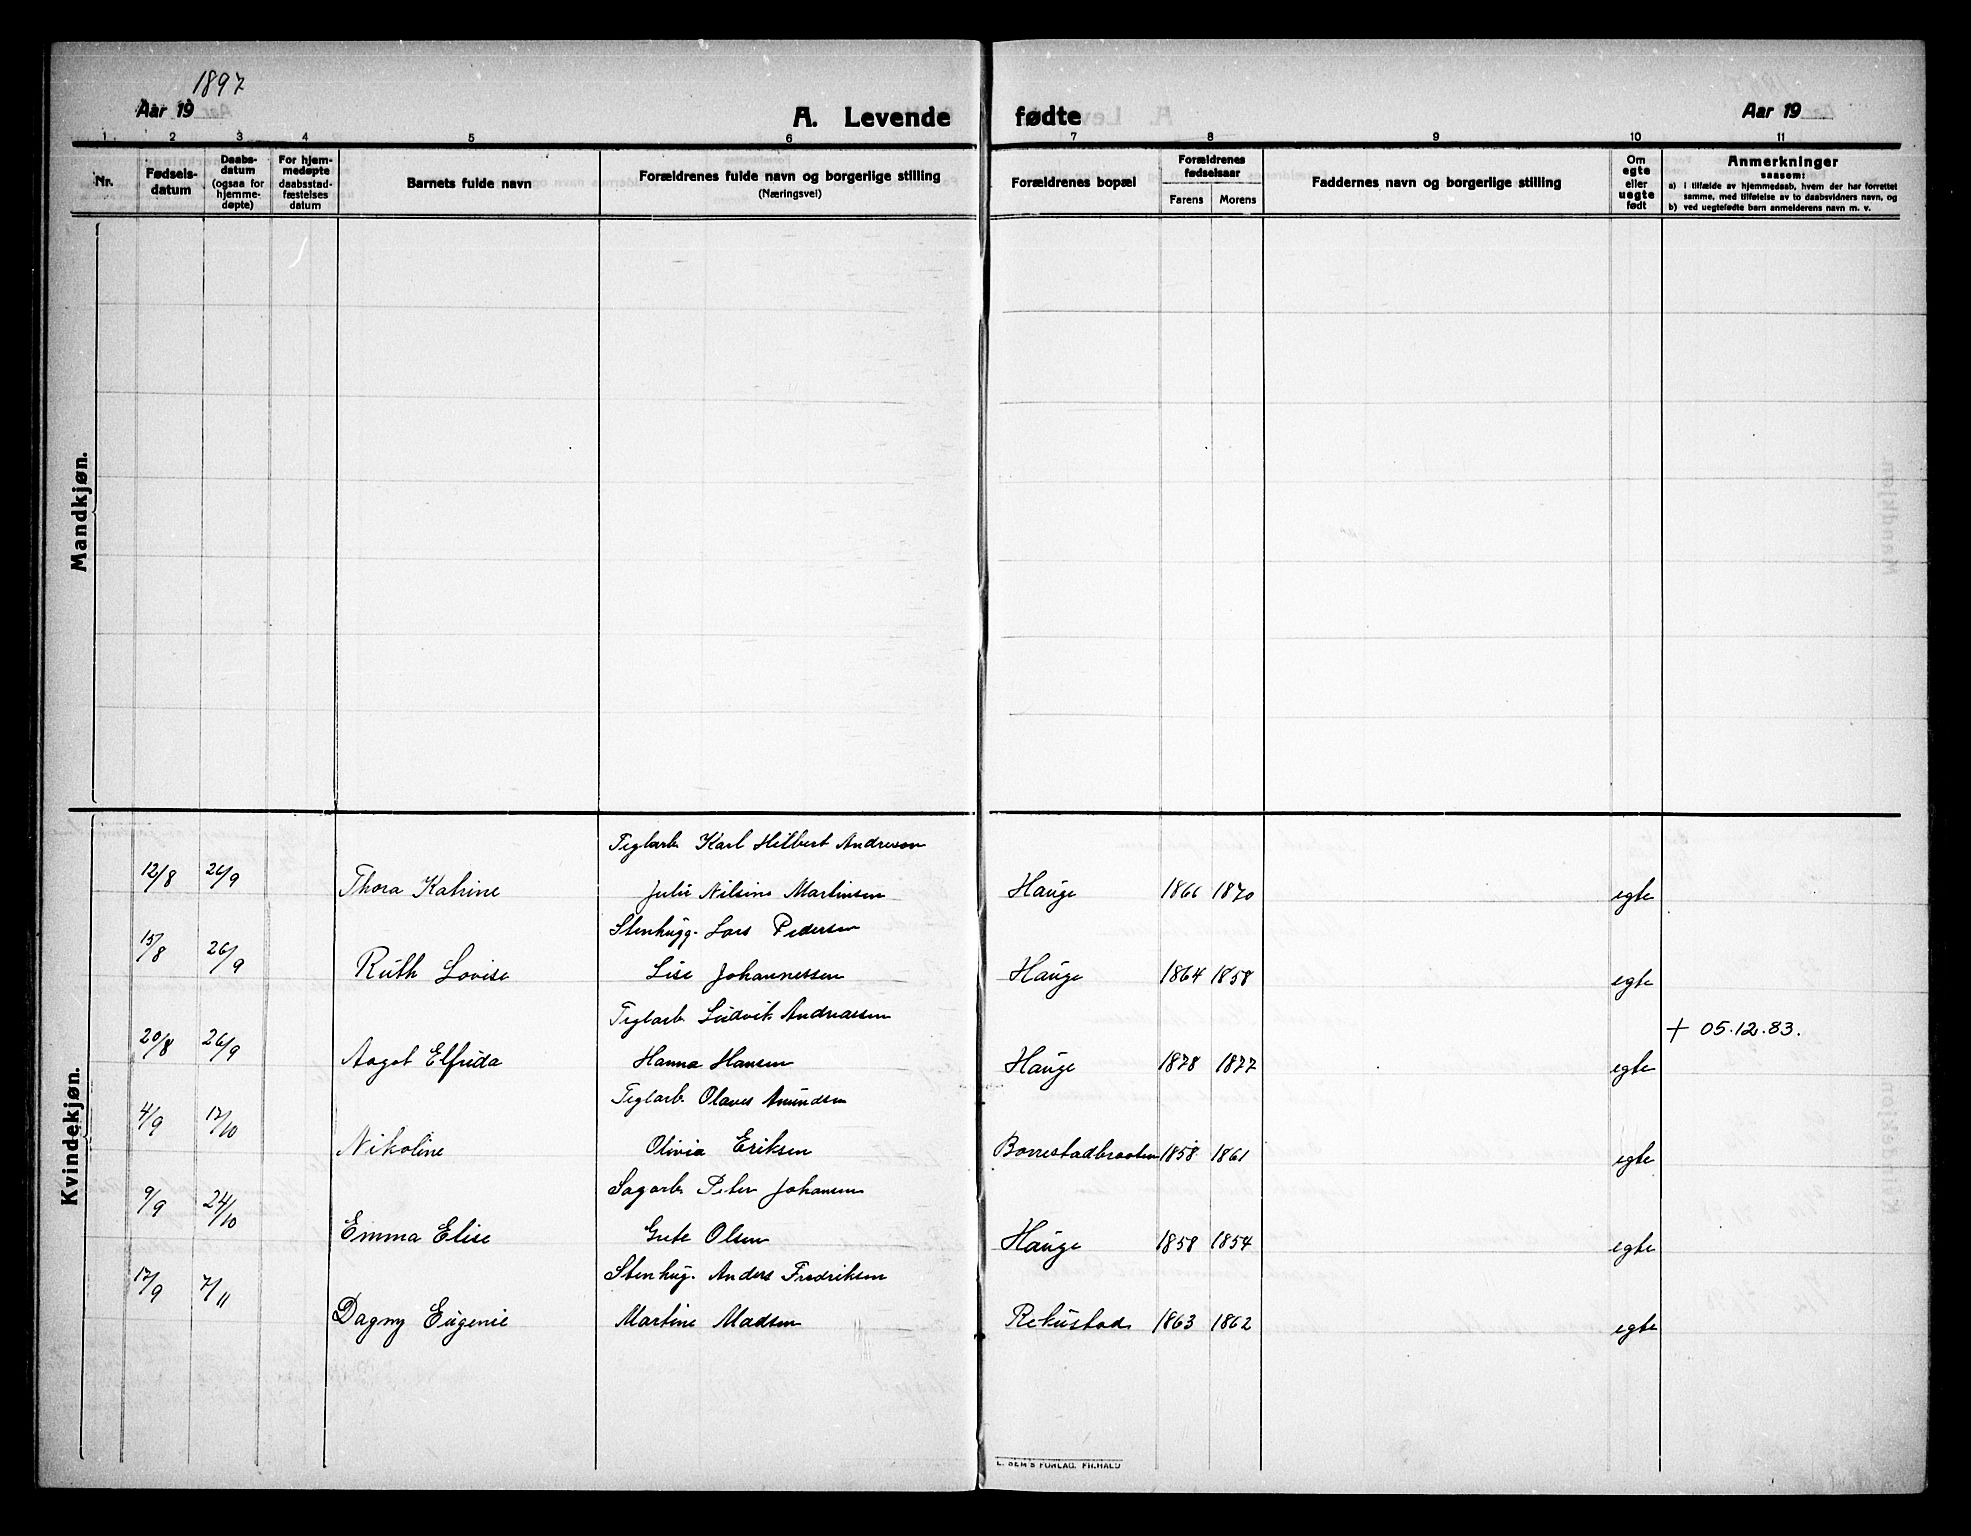 1897
Aar 19
A. Levende fødte
Aar 19
1 2 3 4 5 6 7 8 9 10 11
Nr.
Fødsels-
datum
Daabs-
datum
(ogsaa for
hjemme-
døpte)
For hjem-
medøpte
daabsstad-
fæstelses
datum
Barnets fulde navn
Forældrenes fulde navn og borgerlige stilling
(Næringsvei)
Forældrenes bopæl
Forældrenes
fødselsaar
Farens Morens
Faddernes navn og borgerlige stilling
Om
egte
eller
uegte
født
Anmerkninger
saasom:
a) i tilfælde av hjemmedaab, hvem der har forrettet
samme, med tilføielse av to daabsvidners navn, og
b) ved uegtefødte barn anmelderens navn m. v.
Mandkjøn.
Kvindekjøn.
Teglarb. Karl Hilbert Andresen
12/8 26/9 Thora Katrine Julie Nilsine Martinsen Hauge 1866 1870 egte
Stenhugg. Lars Pedersen
15/8 26/9 Ruth Lovise Lise Johannessen Hauge 1864 1858 egte
Teglarb. Ludvik Andreassen
+ 05.12.83.
20/8 26/9 Aagot Elfrida Hanna Hansen Hauge 1878 1877 egte
Teglarb. Olaves Amundsen
4/9 17/10 Nikoline Olivia Eriksen Borrestadbraaten 1858 1861 egte
Sagarb. Peter Johansen
9/9 24/10 Emma Elise Grete Olsen Hauge 1858 1854 egte
Stenhug. Anders Fredriksen
17/9 7/11 Dagny Eugenie Martine Madsen Rekustad 1863 1862 egte
E. SEM'S FORLAG. FR.HALD